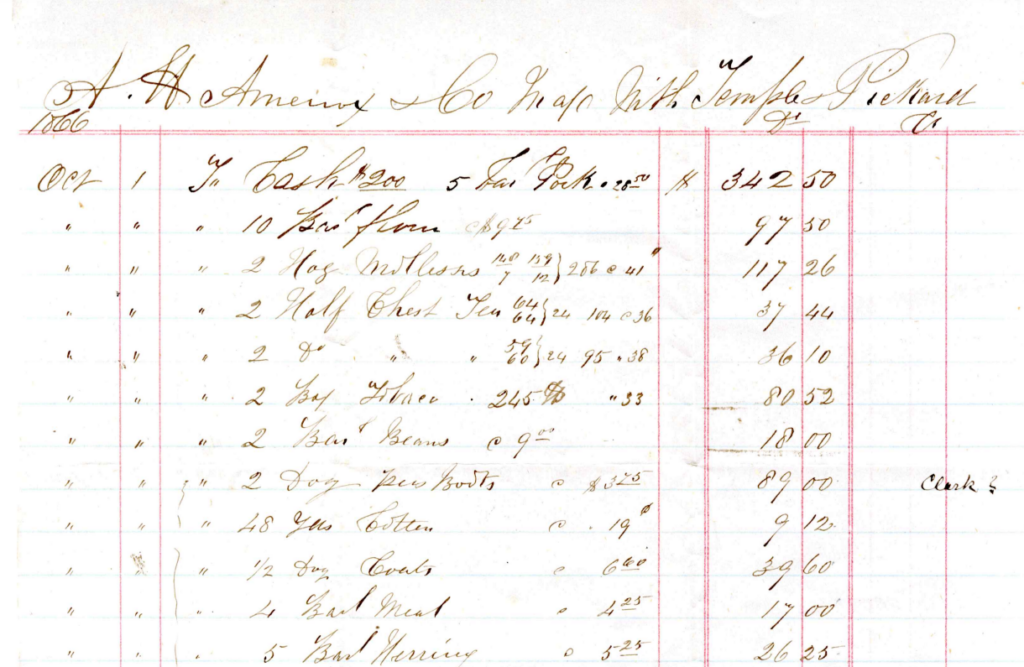 A. H. & Co In a/c With Temple & Pickard
1866 Dr Cr
Oct 1 To Cash $200 5 Bar Pork " 28 50 $ 342 50
" " " 10 Bar flour @ $9 75 97 50
" " " 2 Hog 12 } 286 @ 41 " 117 26
" " " 2 Half Chest Tea 64 64 } 24 104 @ 36 37 44
" " " 2 Do " " 59 60 } 24 95 " 38 36 10
" " " 2 Box Tobaco . 245 lb " 33 80 52
" " " 2 Bar Beans @ 9 00 18 00
" " " 2 Doz Boots @ $3 75 89 00 Clark &
" " " 48 Yds Cotten @ . 19 9 12
" " " 1/2 Doz Coats @ 6 60 39 60
" " " 4 Barl Meal @ 4 25 17 00
" " 5 Barl Herring @ 5 25 26 25